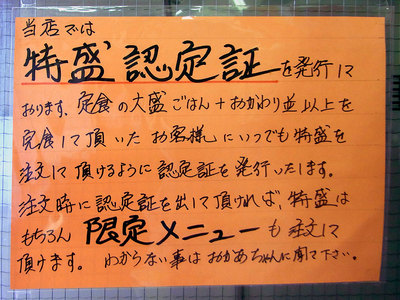 当店では
特盛認定証を発行して
おります。定食の大盛ごはん+おかわり並以上を
完食して頂いたお客様にいつでも特盛を
注文して頂けるように認定証を発行いたします。
注文時に認定証を出して頂ければ、特盛は
もちろん限定メニューも注文して
頂けます。わからない事はおかあちゃんに聞て下さい。